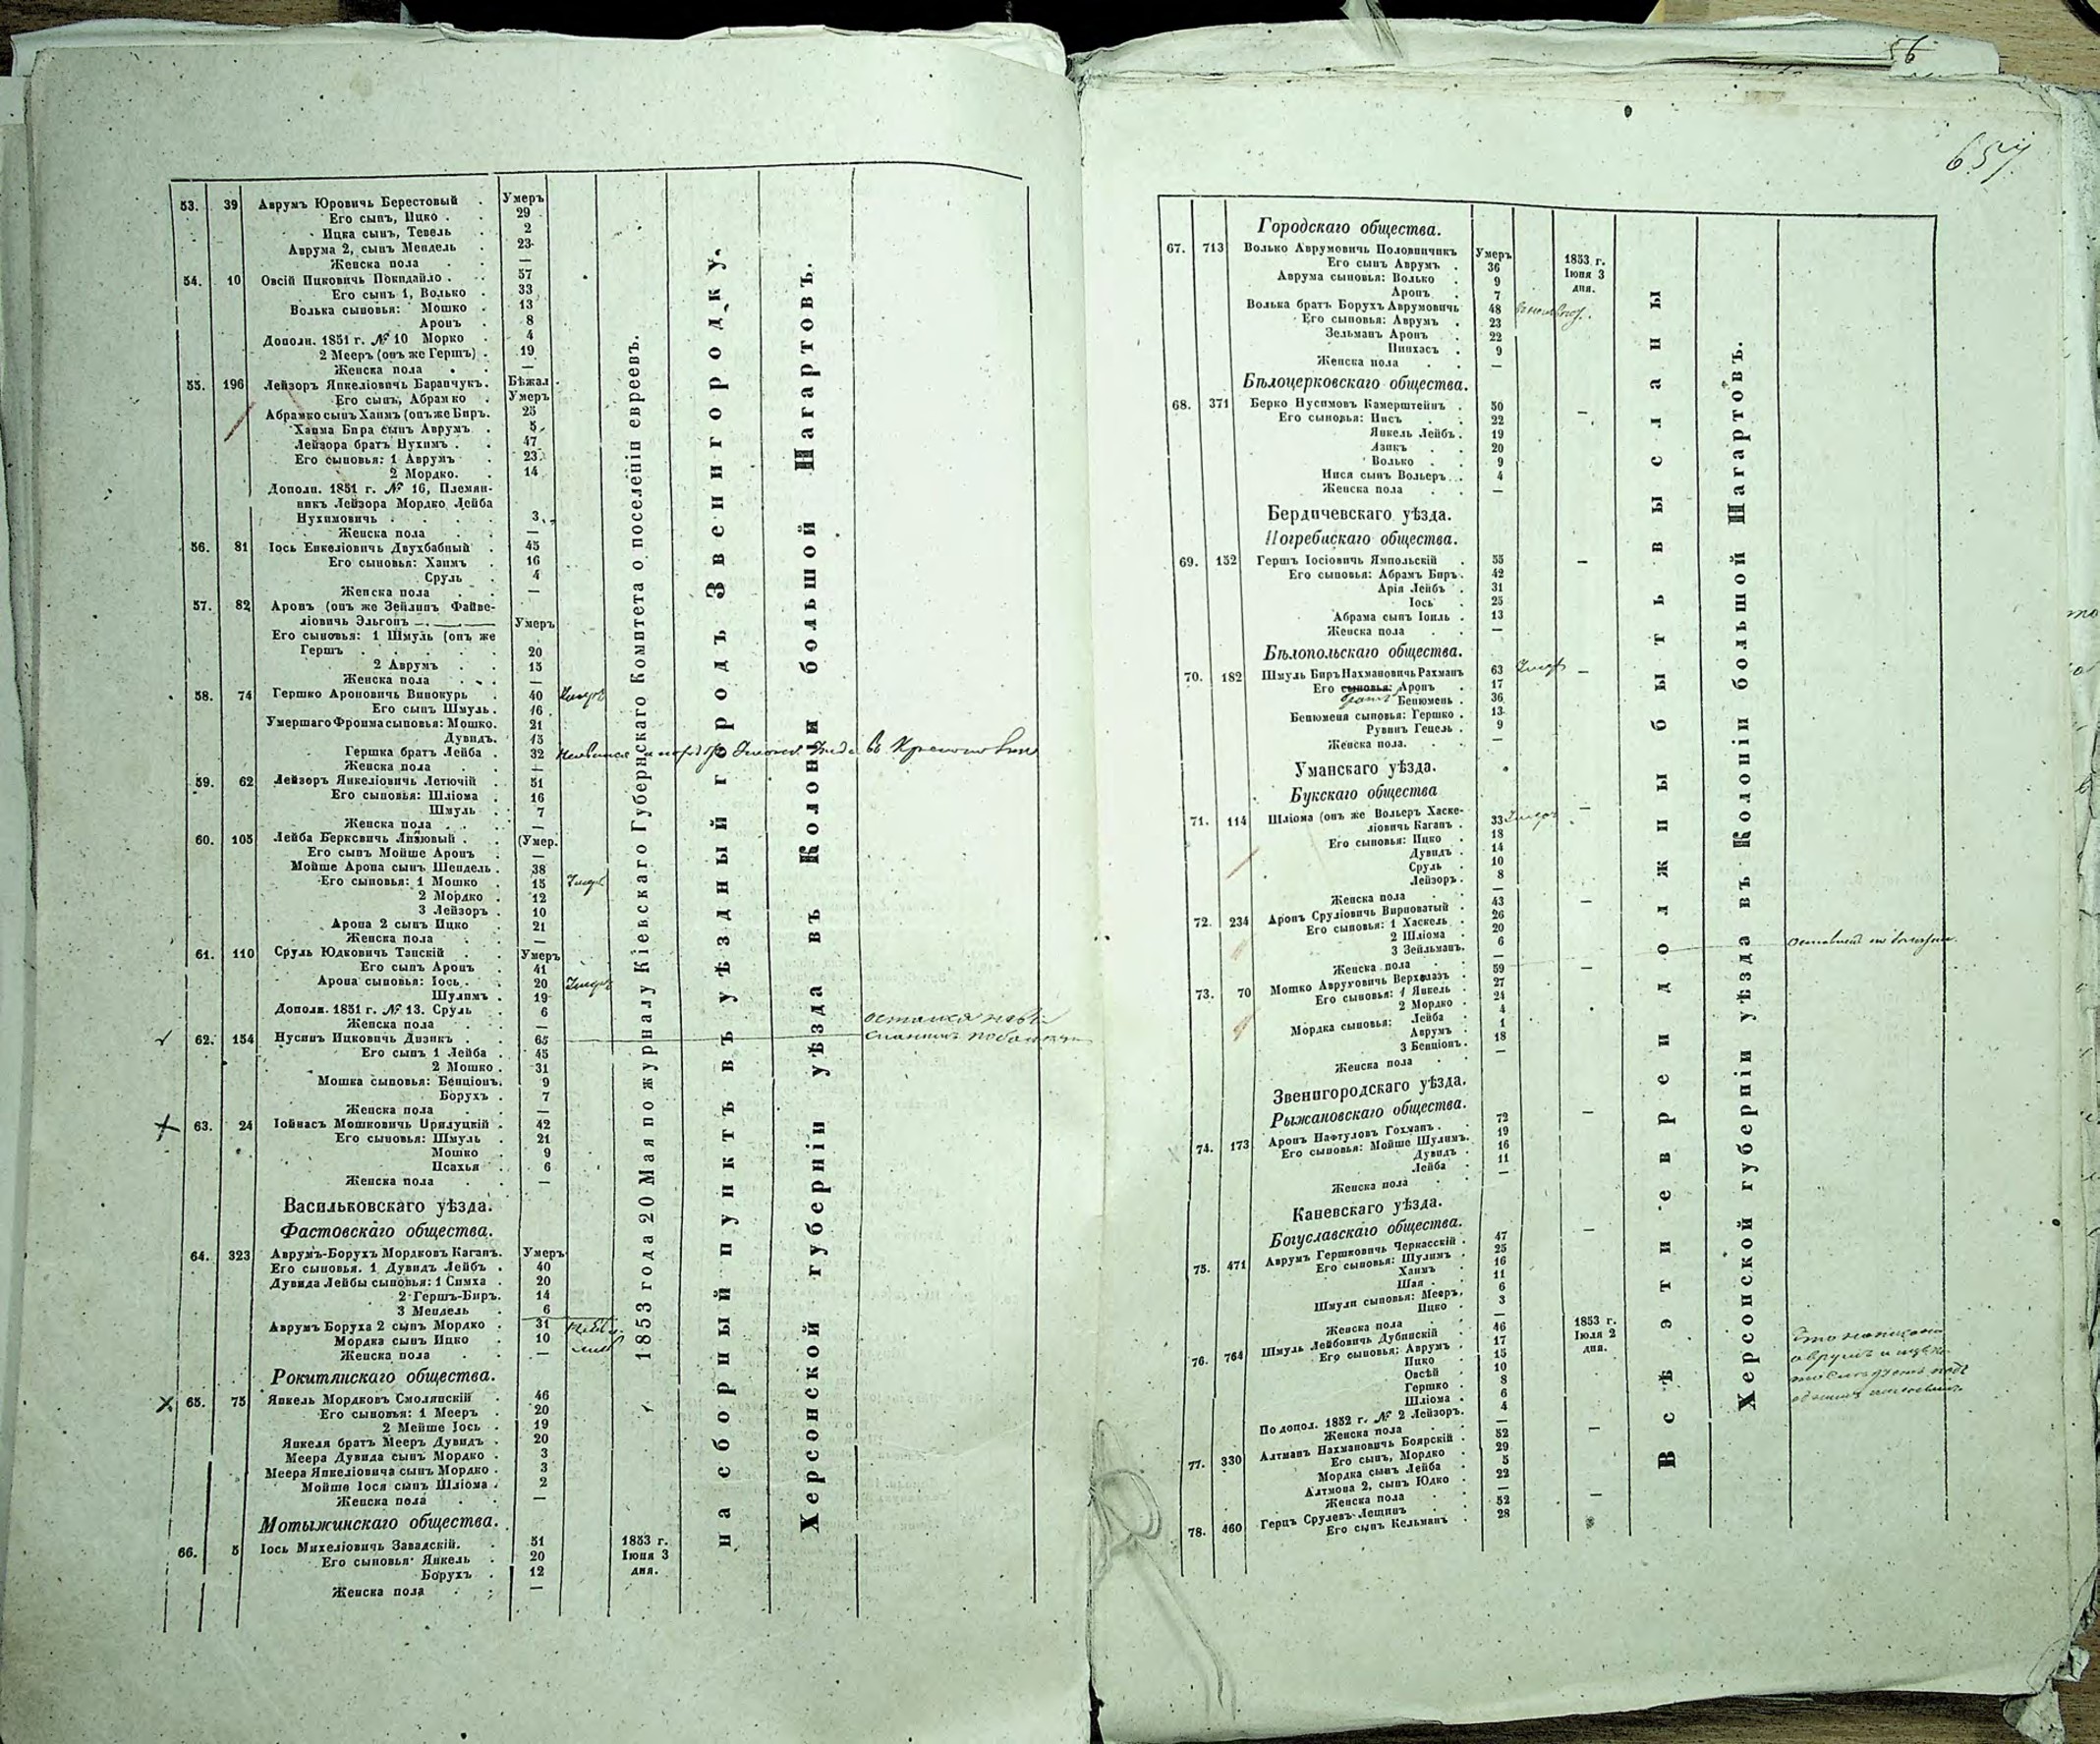 56
657.
53. 39 Аврумъ Юровичь Берестовый . Умеръ
Его сынъ, Ицко . 29
Ицка сынъ, Тевель 2
Аврума 2, сынъ Мендель 23
Женска пола —
54. 10 Овсій Ицковичь Покидайло . 57
Его сынъ 1, Волько . 33
Волька сыновья: Мошко . 13
Аронъ . 8
Дополн. 1851 г. № 10 Морко . 4
2 Мееръ (онъ же Гершъ) . 19
Женска пола —
55. 196 Лейзоръ Янкеліовичь Баранчукъ. Бѣжал.
Его сынъ, Абрамко . Умеръ
Абрамко сынъ Хаимъ (онъ же Биръ. 25
Хаима Бира сынъ Аврумъ . 5
Лейзора братъ Нухимъ . 47
Его сыновья: 1 Аврумъ . 23
2 Мордко. 14
Дополн. 1851 г. № 16, Племян-
никъ Лейзора Мордко Лейба
Нухимовичь . 3
Женска пола —
56. 81 Іось Енкеліовичь Двухбабный . 45
Его сыновья: Хаимъ . 16
Сруль . 4
Женска пола —
57. 82 Аронъ (онъ же Зейлинъ Файве-
ліовичь Эльгонъ Умеръ
Его сыновья: 1 Шмуль (онъ же
Гершъ . 20
2 Аврумъ . 15
Женска пола —
58. 74 Гершко Ароновичь Винокурь . 40
Его сынъ Шмуль. 16
Умершаго Фроима сыновья: Мошко. 21
Дувидъ. 15
Гершка братъ Лейба . 32
Женска пола —
59. 62 Лейзоръ Янкеліовичь Летючій . 51
Его сыновья: Шліома . 16
Шмуль . 7
Женска пола —
60. 105 Лейба Берковичь . (Умер.
Его сынъ Мойше Аронъ —
Мойше Арона сынъ Шендель . 38
Его сыновья: 1 Мошко . 15
2 Мордко . 12
3 Лейзоръ . 10
Арона 2 сынъ Ицко . 21
Женска пола —
61. 110 Сруль Юдковичь Танскій . Умеръ
Его сынъ Аронъ . 41
Арона сыновья: Іось . 20
Шулимъ . 19
Дополн. 1851 г. № 13. Сруль . 6
Женска пола —
62. 154 Нусинъ Ицковичь Дизикъ . 65
Его сынъ 1 Лейба . 45
2 Мошко . 31
Мошка сыновья: Бенціонъ. 9
Борухъ . 7
Женска пола —
63. 24 Іойнасъ Мошковичь Прилуцкій . 42
Его сыновья: Шмуль . 21
Мошко . 9
Псахья . 6
Женска пола —
Васильковскаго уѣзда.
Фастовскаго общества.
64. 323 Аврумъ-Борухъ Мордковъ Каганъ. Умеръ
Его сыновья. 1 Дувидъ Лейбъ . 40
Дувида Лейбы сыновья: 1 Симха . 20
2 Гершъ-Биръ. 14
3 Мендель . 6
Аврумъ Боруха 2 сынъ Мордко . 31
Мордка сынъ Ицко . 10
Женска пола —
Рокитянскаго общества.
65. 75 Янкель Мордковъ Смолянскій . 46
Его сыновья: 1 Мееръ . 20
2 Мейше Іось . 19
Янкеля братъ Мееръ Дувидъ . 20
Меера Дувида сынъ Мордко . 3
Меера Янкеліовича сынъ Мордко . 3
Мойше Іося сынъ Шліома . 2
Женска пола —
Мотыжинскаго общества.
66. 5 Іось Михеліовичь Завадскій. 51
Его сыновья Янкель . 20
Борухъ . 12
Женска пола —
1853 г.
Іюня 3
дня.
1853 года 20 Мая по журналу Кіевскаго Губернскаго Комитета о поселеніи евреевъ.
на сборный пунктъ въ уѣздный городъ Звенигородку.
Херсонской губерніи уѣзда въ Колоніи большой Нагартовъ.
Городскаго общества.
67. 713 Волько Аврумовичь Половинчикъ Умеръ
Его сынъ Аврумъ . 36
Аврума сыновья: Волько . 9
Аронъ . 7
Волька братъ Борухъ Аврумовичь 48
Его сыновья: Аврумъ . 23
Зельманъ Аронъ . 22
Пинхасъ . 9
Женска пола —
1853 г.
Іюня 3
дня.
Бѣлоцерковскаго общества.
68. 371 Берко Нусимовъ Камерштейнъ . 50 —
Его сыновья: Нисъ . 22
Янкель Лейбъ . 19
Азикъ . 20
Волько . 9
Нися сынъ Вольеръ . 4
Женска пола —
Бердичевскаго уѣзда.
Погребискаго общества.
69. 152 Гершъ Іосіовичь Ямпольскій . 55 —
Его сыновья: Абрамъ Биръ. 42
Арія Лейбъ . 31
Іось . 25
Абрама сынъ Іоиль . 13
Женска пола —
Бѣлопольскаго общества.
70. 182 Шмуль Биръ Нахмановичь Рахманъ 63 —
Его сыновья: Аронъ . 17
братъ Бенюмень . 36
Бенюменя сыновья: Гершко . 13
Рувинъ Гецель . 9
Женска пола. —
Уманскаго уѣзда.
Букскаго общества
71. 114 Шліома (онъ же Вольеръ Хаске-
ліовичь Каганъ . 33 —
Его сыновья: Ицко . 18
Дувидъ . 14
Сруль . 10
Лейзоръ. 8
Женска пола —
72. 234 Аронъ Сруліовичь Вирноватый . 43 —
Его сыновья: 1 Хаскель . 26
2 Шліома . 20
3 Зейльманъ. 6
Женска пола —
73. 70 Мошко Авруховичь 59 —
Его сыновья: 1 Янкель . 27
2 Мордко . 24
Мордка сыновья: Лейба . 4
Аврумъ . 1
3 Бенціонъ. 18
Женска пола —
Звенигородскаго уѣзда.
Рыжановскаго общества.
74. 173 Аронъ Нафтуловъ Гохманъ . 72 —
Его сыновья: Мойше Шулимъ. 19
Дувидъ . 16
Лейба . 11
Женска пола —
Каневскаго уѣзда.
Богуславскаго общества.
75. 471 Аврумъ Гершковичь Черкасскій . 47 —
Его сыновья: Шулимъ . 25
Хаимъ . 16
Шая . 11
Шмули сыновья: Мееръ. 6
Ицко . 3
Женска пола —
76. 764 Шмуль Лейбовичь Дубинскій . 46
Его сыновья: Аврумъ . 17
Ицко . 15
Овсѣй . 10
Гершко . 8
Шліома . 6
По допол. 1852 г. № 2 Лейзоръ. 4
Женска пола —
1853 г.
Іюля 2
дня.
77. 330 Алтманъ Нахмановичь Боярскій . 52 —
Его сынъ, Мордко . 29
Мордка сынъ Лейба . 5
Алтмона 2, сынъ Юдко . 22
Женска пола —
78. 460 Герцъ Срулевъ Лещинъ . 52 —
Его сынъ Кельманъ . 28
Всѣ эти евреи должны быть высланы
Херсонской губерніи уѣзда въ Колоніи большой Нагартовъ.